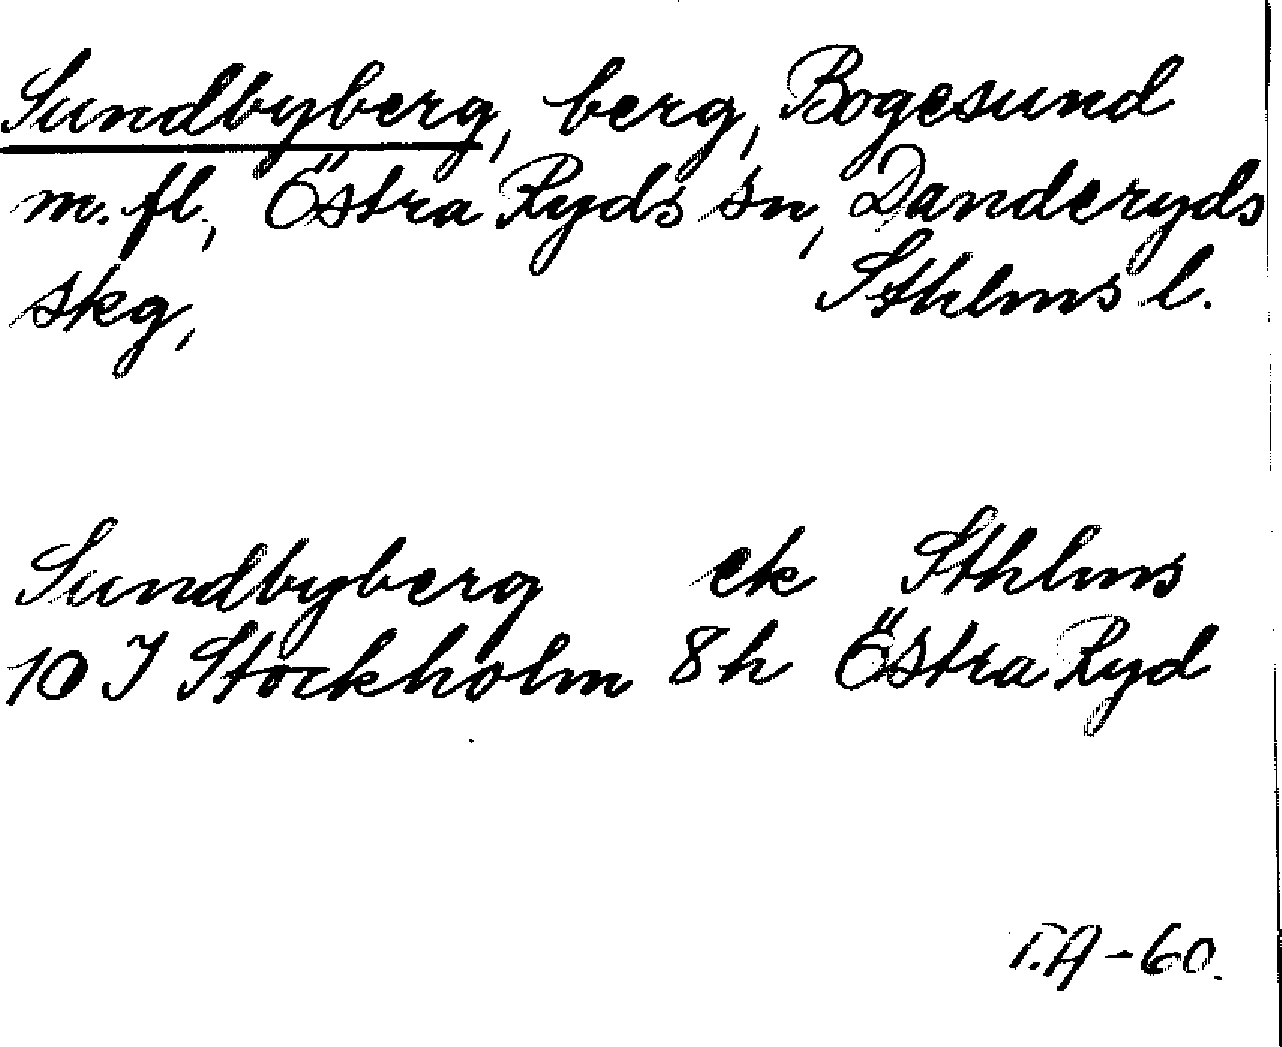 Sundbyberg, berg, Bogesund
m. fl., Östra Ryds sn, Danderyds
skg, Sthlms l.
Sundbyberg ek Sthlms
10 I Stockholm 8h Östra Ryd
T.A-60.